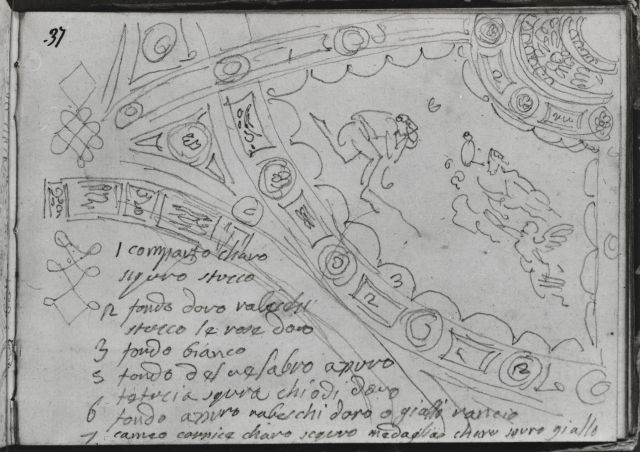 .37
6
6
3
2
2
1 comparto chiaro
scuro stucco
2 fondo doro rabeschi
stucco le rose doro
3 fondo bianco
5 fondo del azuro
scura chiodi doro
6 fondo azuro rabeschi doro o giallo rancio
7 cameo cornice chiaro scuro medaglia chiaro scuro giallo